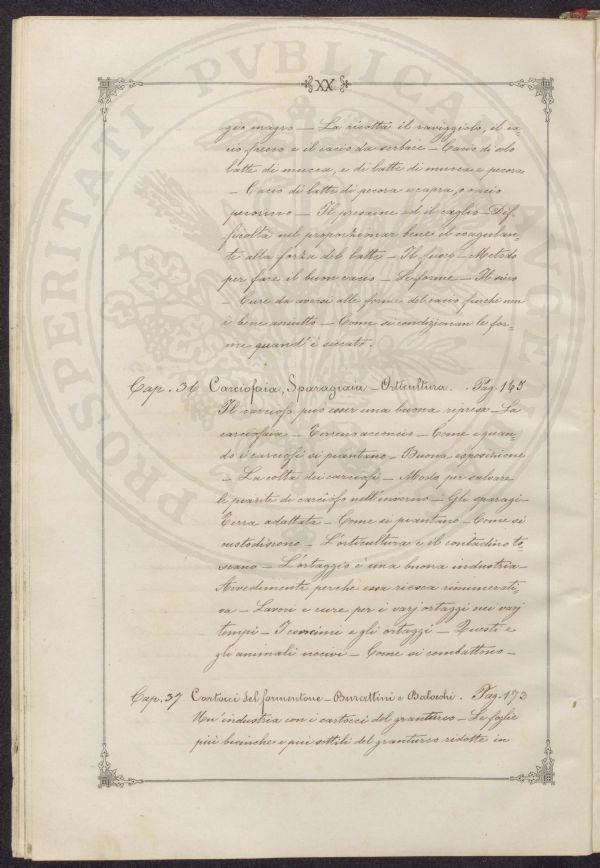 XX
PROSPERITATI PVBLICAE AVGENDAE
gio magro — La ricotta il raviggiolo, il ca-
cio fresco e il cacio da serbare — Cacio di solo
latte di mucca, e di latte di mucca e pecora
— Cacio di latte di pecora e capra, o cacio
pecorino — Il presame ed il caglio — Dif-
ficoltà nel proporzionar bene il coagulan-
te alla forza del latte — Il fuoco — Metodo
per fare il buon cacio — Le forme — Il siero
— Cure da aversi alle forme del cacio finchè non
è bene asciutto — Come si condizionan le for-
me quand'è seccato.
Cap. 36 Carciofaia, Sparagiaia — Orticultura. . Pag. 165
Il carciofo può esser una buona ripresa — La
carciofaia — Terreno acconcio — Come e quan-
do i carciofi si piantano — Buona esposizione
— La colta dei carciofi — Modo per salvare
le piante di carciofo nell'inverno — Gli sparagi —
Terra adattata — Come si piantano — Come si
custodiscono — L'orticultura e il contadino to-
scano — L'ortaggio è una buona industria —
Avvedimenti perchè essa riesca rimunerati-
va — Lavori e cure per i varj ortaggi nei varj
tempi — I concimi e gli ortaggi — Insetti e
gli animali nocivi — Come si combattino —
Cap. 37 Cartocci del formentone — Burattini e Balocchi. Pag. 173
Un'industria con i cartocci del granturco — Le foglie
più bianche e più sottili del granturco ridotte in